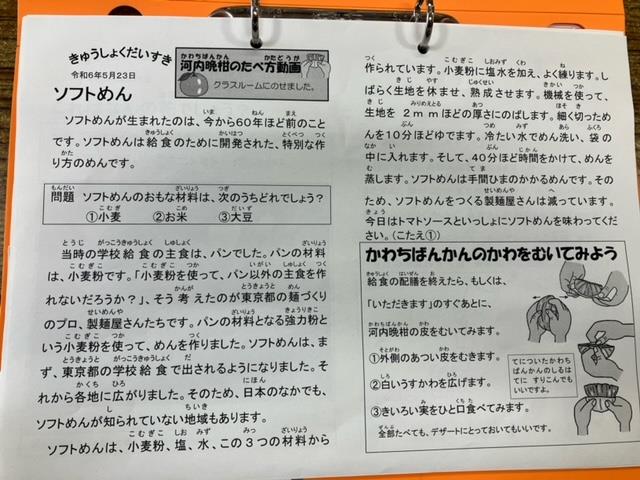 きゅうしょくだいすき
令和6年5月23日
河内晩柑のたべ方動画
クラスルームにのせました。
ソフトめん
ソフトめんが生まれたのは、今から60年ほど前のこと
です。ソフトめんは給食のために開発された、特別な作
り方のめんです。
問題 ソフトめんのおもな材料は、次のうちどれでしょう？
①小麦 ②お米 ③大豆
当時の学校給食の主食は、パンでした。パンの材料
は、小麦粉です。「小麦粉を使って、パン以外の主食を作
れないだろうか？」、そう考えたのが東京都の麺づくり
のプロ、製麺屋さんたちです。パンの材料となる強力粉と
いう小麦粉を使って、めんを作りました。ソフトめんは、ま
ず、東京都の学校給食で出されるようになりました。そ
れから各地に広がりました。そのため、日本のなかでも、
ソフトめんが知られていない地域もあります。
ソフトめんは、小麦粉、塩、水、この3つの材料から
作られています。小麦粉に塩水を加え、よく練ります。し
ばらく生地を休ませ、熟成させます。機械を使って、
生地を2mmほどの厚さにのばします。細く切っため
んを10分ほどゆでます。冷たい水でめん洗い、袋の
中に入れます。そして、40分ほど時間をかけて、めんを
蒸します。ソフトめんは手間ひまのかかるめんです。その
ため、ソフトめんをつくる製麺屋さんは減っています。
今日はトマトソースといっしょにソフトめんを味わってくだ
さい。(こたえ①)
かわちばんかんのかわをむいてみよう
給食の配膳を終えたら、もしくは、
「いただきます」のすぐあとに、
河内晩柑の皮をむいてみます。
①外側のあつい皮をむきます。
②白いうすかわを広げます。
③きいろい実をひと口食べてみます。
全部たべても、デザートにとっておいてもいいです。
てについたかわち
ばんかんのしるは
てに すりこんでも
いいですよ。